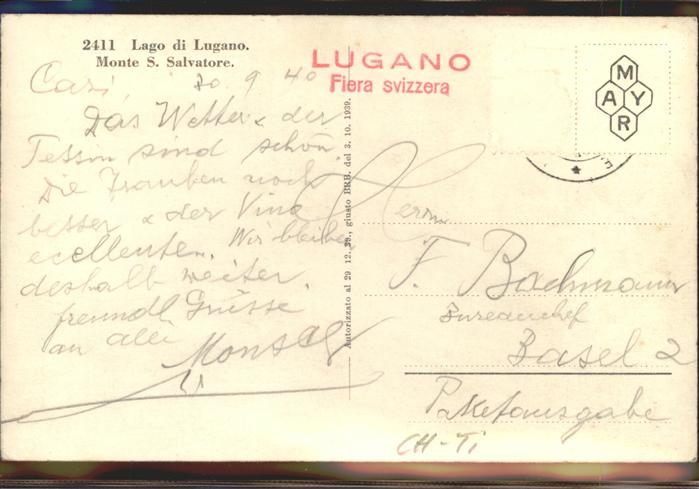 2411 Lago di Lugano.
Monte S. Salvatore.
LUGANO
Fiera svizzera
M
A Y
R
Casi, 30. 9. 40
Das Wetter & der
Tessin sind schön.
Die Trauben noch
besser & der Vino
ecellente. Wir bleiben
deshalb weiter.
freundl Grüsse
an alli
Autorizzato al 29 12. 39., giusto BRB. del 3. 10. 1939.
Herrn
F. Bachmann
Bureauchef
Basel 2
CH-Ti